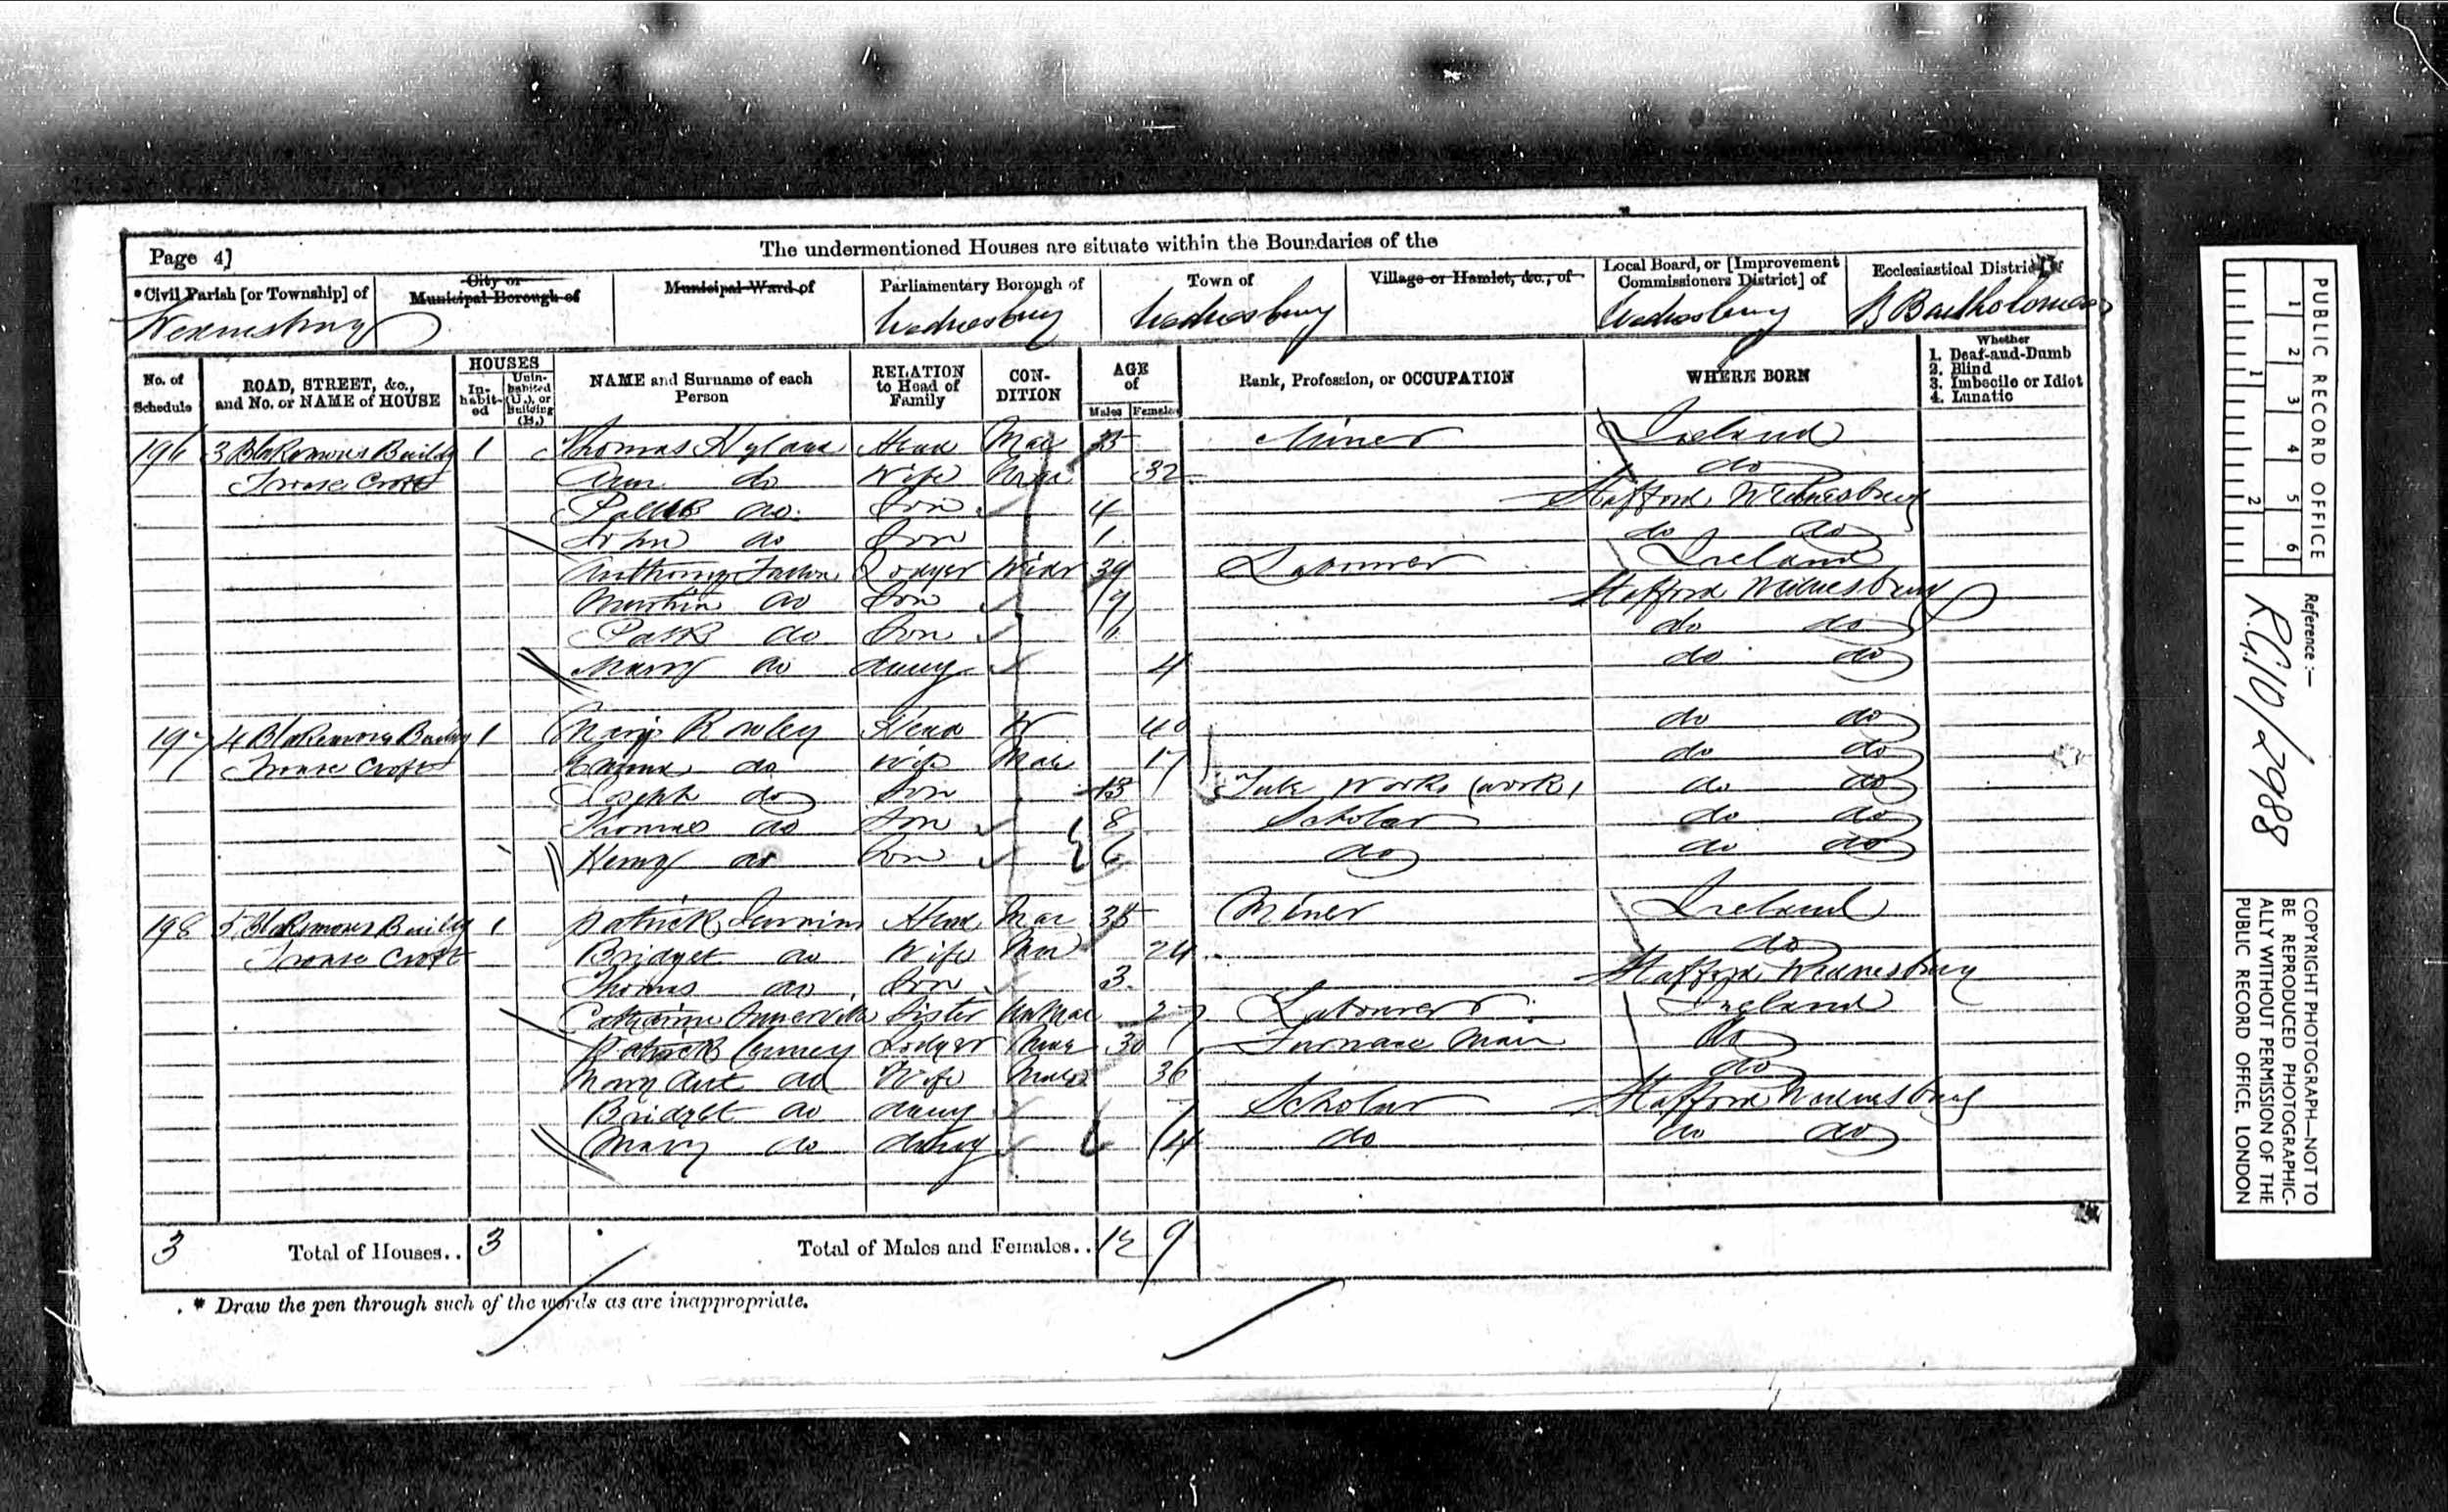 Page 4]
The undermentioned Houses are situate within the Boundaries of the
*Civil Parish [or Township] of
City or Municipal Borough of
Municipal Ward of
Parliamentary Borough of
Town of
Village or Hamlet, &c., of
Local Board, or [Improvement Commissioners District] of
Ecclesiastical District of
Wednesbury
Wednesbury
Wednesbury
Wednesbury
St Bartholomew
No. of Schedule
ROAD, STREET, &c., and No. or NAME of HOUSE
HOUSES
In-habit-ed
Unin-habited (U.), or Building (B.)
NAME and Surname of each Person
RELATION to Head of Family
CON-DITION
AGE of
Males
Females
Rank, Profession, or OCCUPATION
WHERE BORN
Whether
1. Deaf-and-Dumb
2. Blind
3. Imbecile or Idiot
4. Lunatic
196 3 Blakemores Buildg 1 Thomas Hyland Head Mar 35 Miner Ireland
Croft Ann do Wife Mar 32 do
do Son 4 Stafford Wednesbury
John do Son 1 do do
Anthony Lodger Widr 39 Labourer Ireland
Martin do Son 9 Stafford Wednesbury
Patk do Son 6 do do
Mary do daug 4 do do
197 4 Blakemores Buildg 1 Rowley Head W 40 do do
Croft Emma do Wife Mar 17 do do
Joseph do Son 13 Tube Works (work) do do
Thomas do Son 8 Scholar do do
Henry do Son 6 do do do
198 5 Blakemores Buildg 1 Patrick Head Mar 35 Miner Ireland
Croft Bridget do Wife Mar 24 do
Thomas do Son 3 Stafford Wednesbury
Catharine Sister UnMar 27 Labourer Ireland
Patrick Lodger Mar 30 Furnace Man do
Mary Ann do Wife Mar 36 do
Bridget do daug 7 Scholar Stafford Wednesbury
Mary do daug 4 do do do
3 Total of Houses.. 3 Total of Males and Females.. 12 9
* Draw the pen through such of the words as are inappropriate.
PUBLIC RECORD OFFICE
1 2 3 4 5 6
1 2
Reference :—
R.G.10/2988
COPYRIGHT PHOTOGRAPH—NOT TO
BE REPRODUCED PHOTOGRAPHIC-
ALLY WITHOUT PERMISSION OF THE
PUBLIC RECORD OFFICE, LONDON